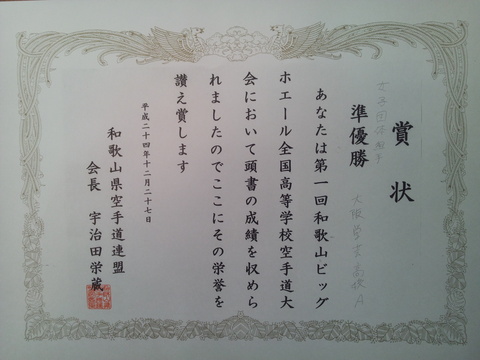 賞状
女子団体組手
準優勝
大阪学芸高校A
あなたは第一回和歌山ビッグ
ホエール全国高等学校空手道大
会において頭書の成績を収めら
れましたのでここにその栄誉を
讃え賞します
平成二十四年十二月二十七日
和歌山県空手道連盟
会長 宇治田栄蔵